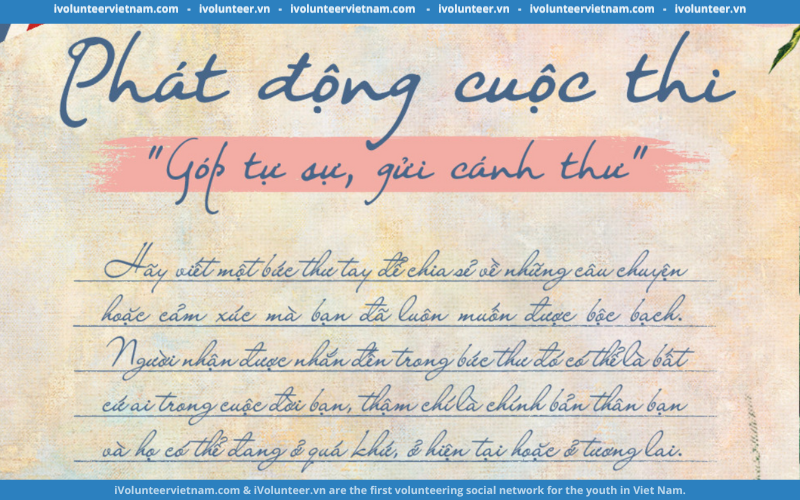 ivolunteervietnam.com - ivolunteer.vn - ivolunteervietnam.com - ivolunteer.vn - ivolunteervietnam.com - ivolunteer.vn
Phát động cuộc thi
"Góp tự sự, gửi cánh thư"
Hãy viết một bức thư tay để chia sẻ về những câu chuyện
hoặc cảm xúc mà bạn đã luôn muốn được bộc bạch.
Người nhận được nhắn đến trong bức thư đó có thể là bất
cứ ai trong cuộc đời bạn, thậm chí là chính bản thân bạn
và họ có thể đang ở quá khứ, ở hiện tại hoặc ở tương lai.
iVolunteervietnam.com & iVolunteer.vn are the first volunteering social network for the youth in Viet Nam.